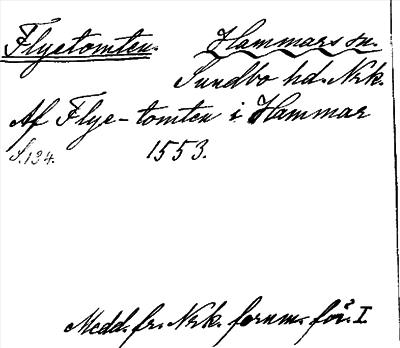 Flyetomten. Hammars sn.
Sundbo hd. Nrk.
Af Flye-tomten i Hammar
S. 134. 1553.
Medd. fr. Nrk. fornm. för. I